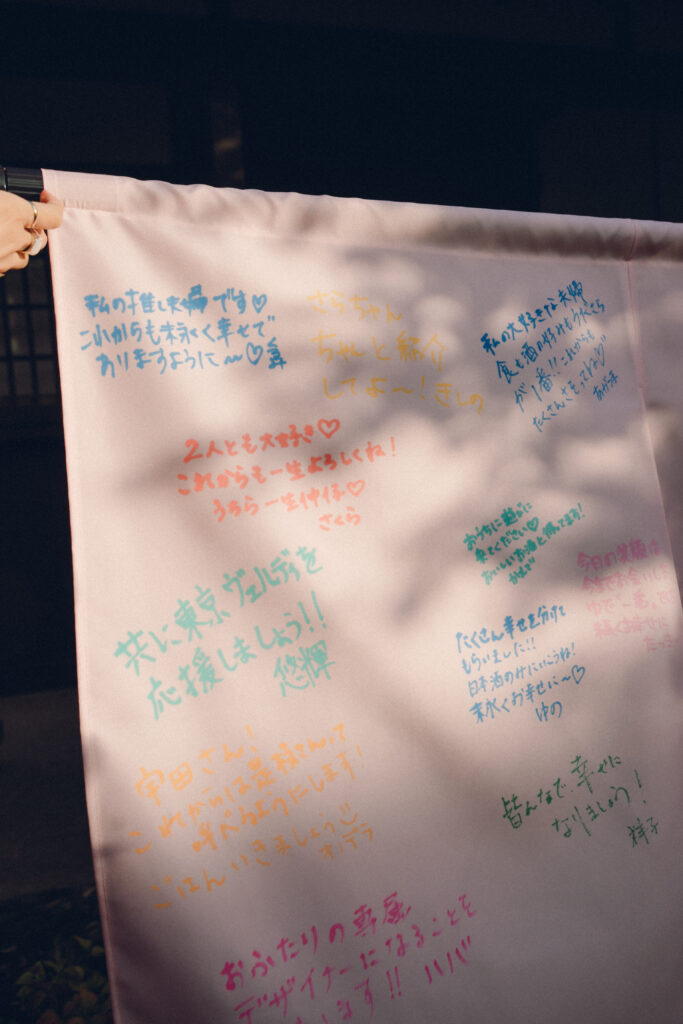 私の推し夫婦です♡
これからも末永く幸せで
おりますように〜♡
さらちゃん
ちゃんと紹介
してよ〜！きしの
私の大好きな夫婦
食も酒の好みもうれてら
が1番!!これからも
たくさんさそってね♡
2人とも大好き♡
これからも一生よろしくね！
うちら一生仲仔♡
さくら
おうちに遊びに
来てください♡
おいしいお酒と待ってます！
かえで
今日の笑顔は
共に東京ヴェルディを
応援しましょう!!
悠輝
たくさん幸せを分けて
もらいました!!
日本酒のみにいこうね！
末永くお幸せに〜♡
ゆの
宇田さん！
これからは
呼べるようにします！
ごはんいきましょう
皆んなで幸せに
なりましょう！
祥子
おふたりの専属
デザイナーになることを
します!!